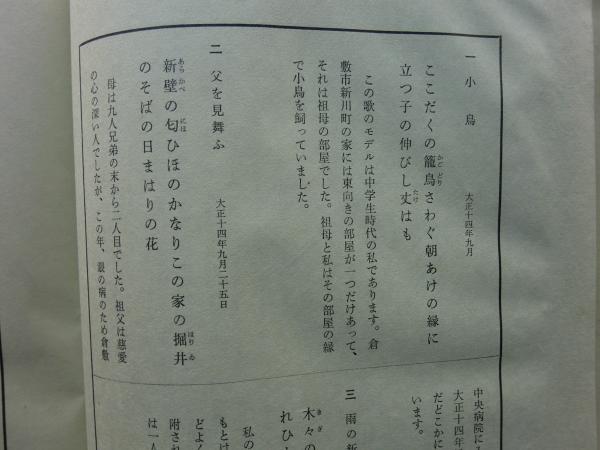 一 小鳥 大正十四年九月
ここだくの籠鳥さわぐ朝あけの縁に
立つ子の伸びし丈はも
この歌のモデルは中学生時代の私であります。倉
敷市新川町の家には東向きの部屋が一つだけあって、
それは祖母の部屋でした。祖母と私はその部屋の縁
で小鳥を飼っていました。
二 父を見舞ふ 大正十四年九月二十五日
新壁の匂ひほのかなりこの家の掘井
のそばの日まはりの花
母は九人兄弟の末から二人目でした。祖父は慈愛
の心の深い人でしたが、この年、眼の病のため倉敷
中央病院に
大正十四年
だどこかに
います。
三 雨の
木々の
れひ
私の
もとは
どよく
附され
は一人